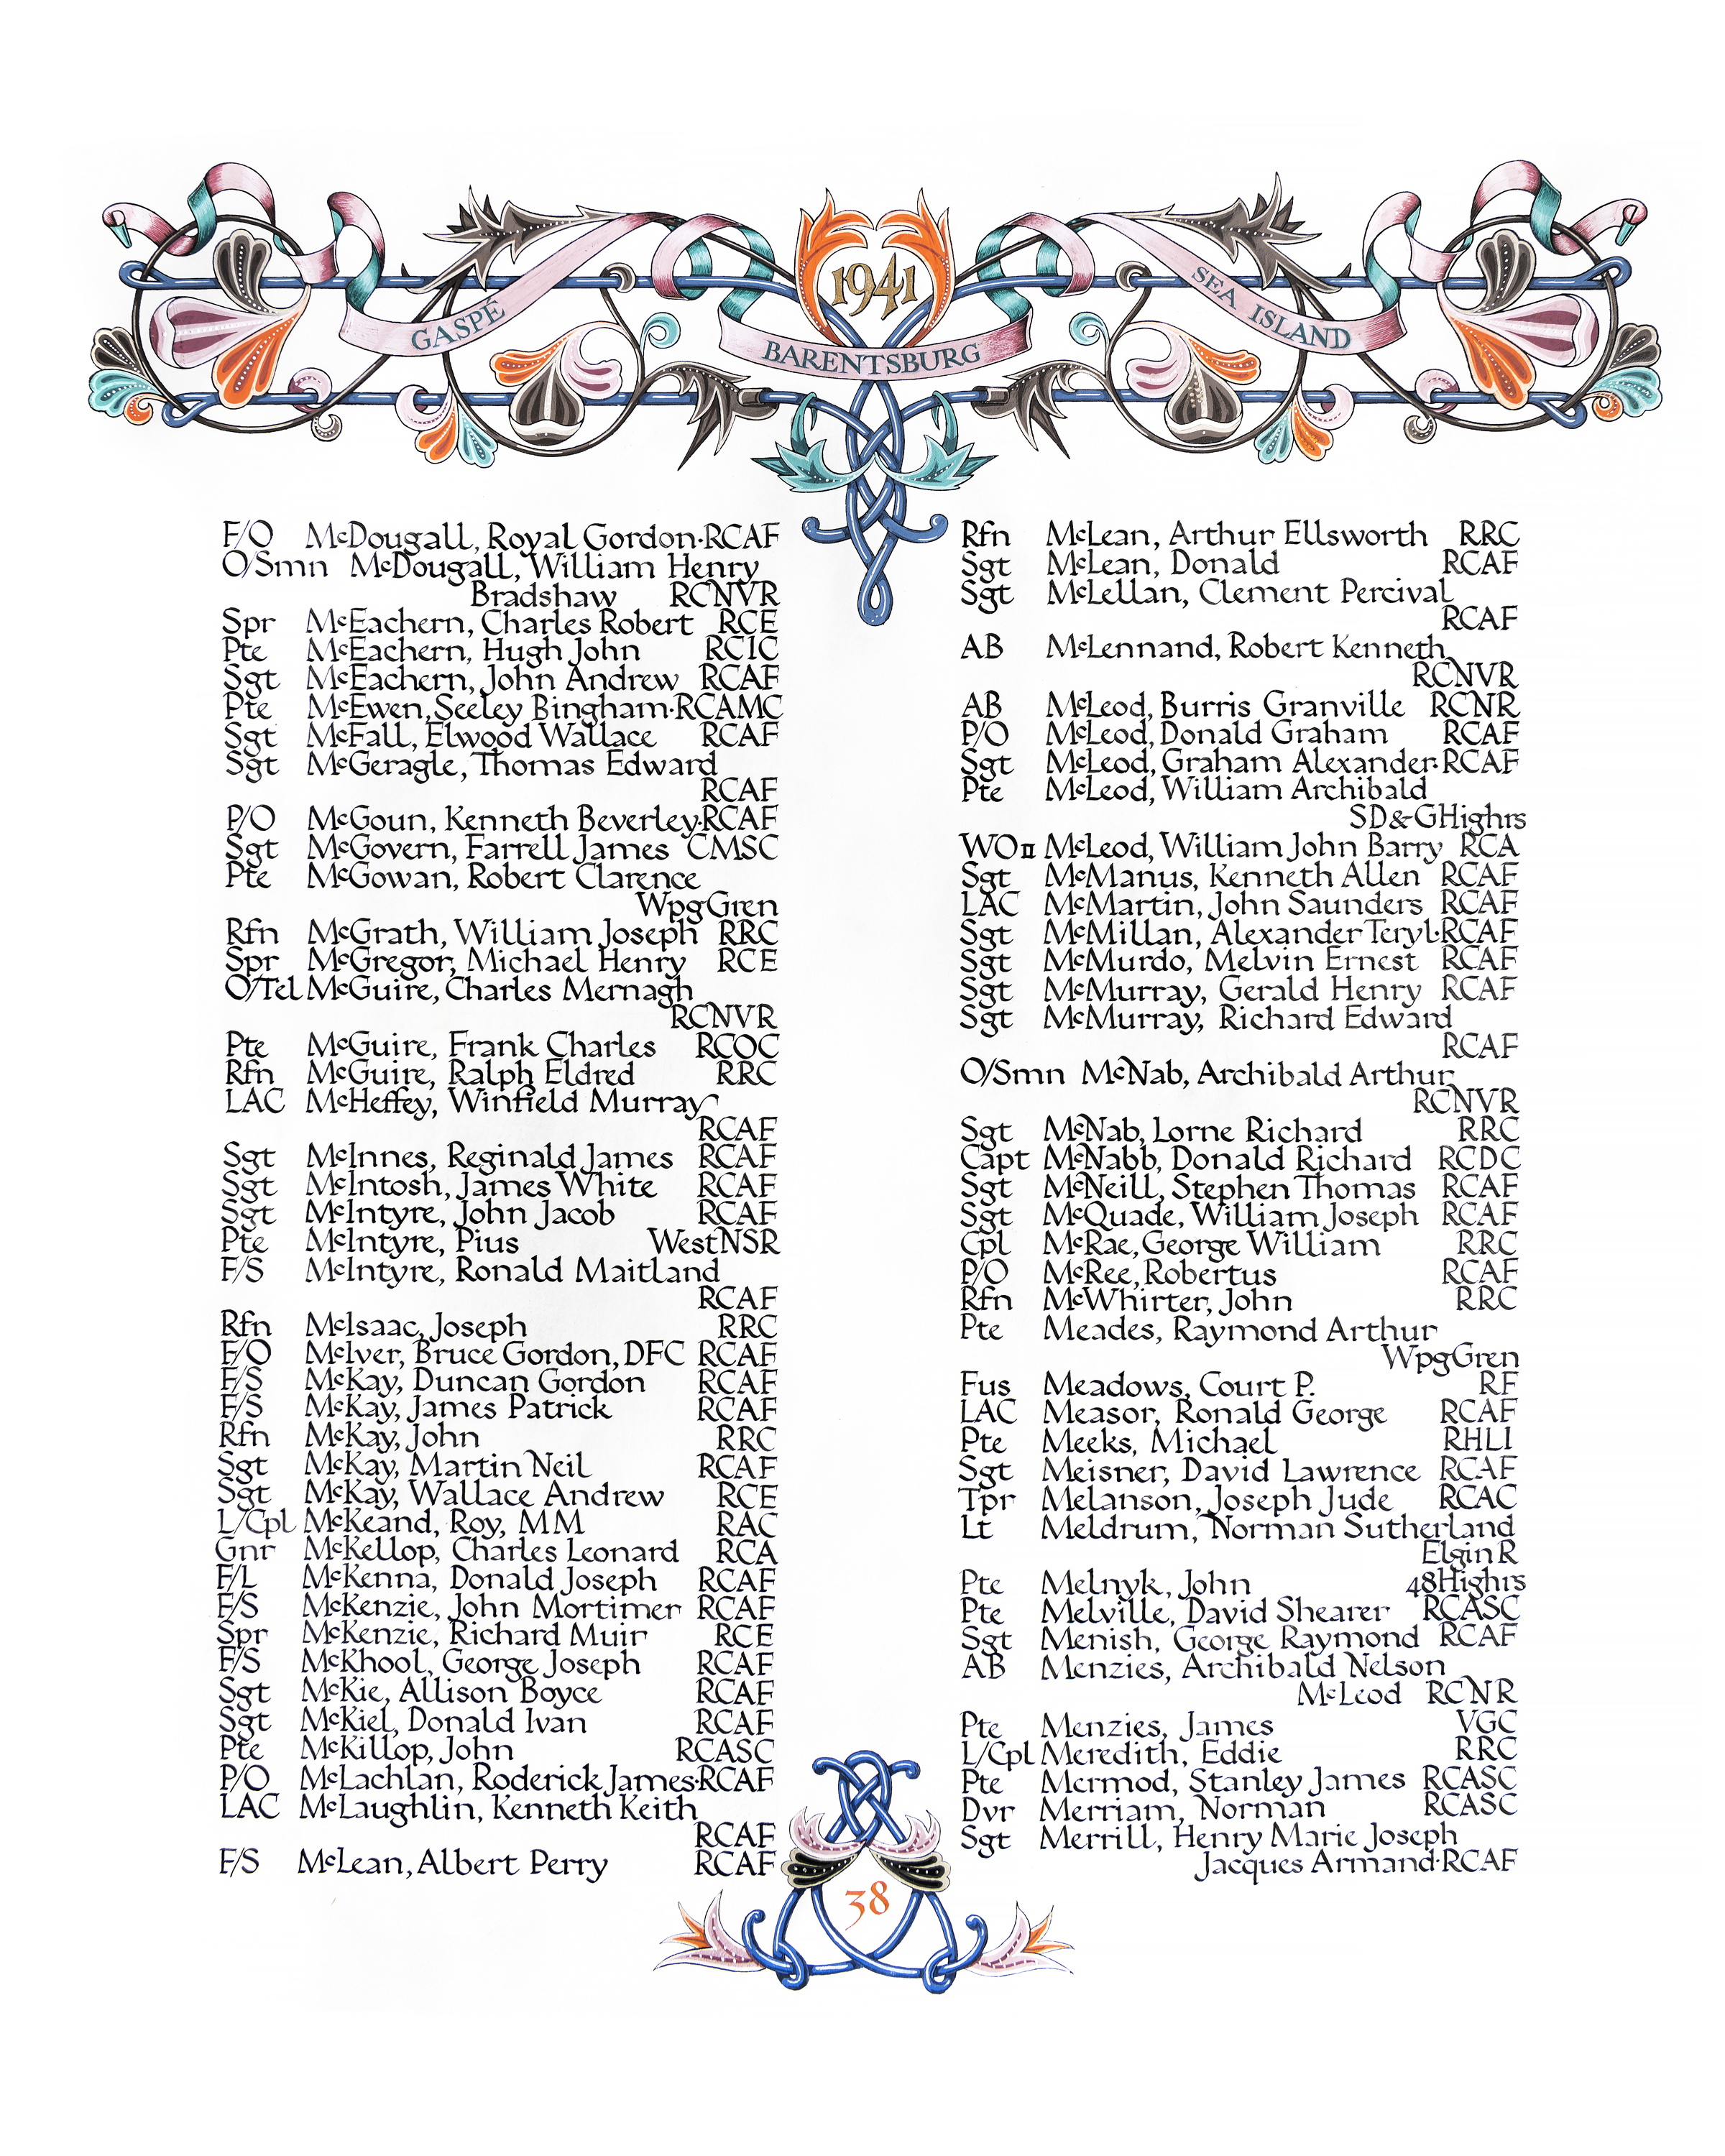 1941
GASPÉ
BARENTSBURG
SEA ISLAND
F/O McDougall, Royal Gordon·RCAF
O/Smn McDougall, William Henry
Bradshaw RCNVR
Spr McEachern, Charles Robert RCE
Pte McEachern, Hugh John RCIC
Sgt McEachern, John Andrew RCAF
Pte McEwen, Seeley Bingham·RCAMC
Sgt McFall, Elwood Wallace RCAF
Sgt McGeragle, Thomas Edward
RCAF
P/O McGoun, Kenneth Beverley·RCAF
Sgt McGovern, Farrell James CMSC
Pte McGowan, Robert Clarence
WpgGren
Rfn McGrath, William Joseph RRC
Spr McGregor, Michael Henry RCE
O/Tel McGuire, Charles Mernagh
RCNVR
Pte McGuire, Frank Charles RCOC
Rfn McGuire, Ralph Eldred RRC
LAC McHeffey, Winfield Murray
RCAF
Sgt McInnes, Reginald James RCAF
Sgt McIntosh, James White RCAF
Sgt McIntyre, John Jacob RCAF
Pte McIntyre, Pius WestNSR
F/S McIntyre, Ronald Maitland
RCAF
Rfn McIsaac, Joseph RRC
F/O McIver, Bruce Gordon, DFC RCAF
F/S McKay, Duncan Gordon RCAF
F/S McKay, James Patrick RCAF
Rfn McKay, John RRC
Sgt McKay, Martin Neil RCAF
Sgt McKay, Wallace Andrew RCE
L/Cpl McKeand, Roy, MM RAC
Gnr McKellop, Charles Leonard RCA
F/L McKenna, Donald Joseph RCAF
F/S McKenzie, John Mortimer RCAF
Spr McKenzie, Richard Muir RCE
F/S McKhool, George Joseph RCAF
Sgt McKie, Allison Boyce RCAF
Sgt McKiel, Donald Ivan RCAF
Pte McKillop, John RCASC
P/O McLachlan, Roderick James·RCAF
LAC McLaughlin, Kenneth Keith
RCAF
F/S McLean, Albert Perry RCAF
Rfn McLean, Arthur Ellsworth RRC
Sgt McLean, Donald RCAF
Sgt McLellan, Clement Percival
RCAF
AB McLennand, Robert Kenneth
RCNVR
AB McLeod, Burris Granville RCNR
P/O McLeod, Donald Graham RCAF
Sgt McLeod, Graham Alexander·RCAF
Pte McLeod, William Archibald
SD&GHighrs
WOII McLeod, William John Barry RCA
Sgt McManus, Kenneth Allen RCAF
LAC McMartin, John Saunders RCAF
Sgt McMillan, Alexander Teryl·RCAF
Sgt McMurdo, Melvin Ernest RCAF
Sgt McMurray, Gerald Henry RCAF
Sgt McMurray, Richard Edward
RCAF
O/Smn McNab, Archibald Arthur
RCNVR
Sgt McNab, Lorne Richard RRC
Capt McNabb, Donald Richard RCDC
Sgt McNeill, Stephen Thomas RCAF
Sgt McQuade, William Joseph RCAF
Cpl McRae, George William RRC
P/O McRee, Robertus RCAF
Rfn McWhirter, John RRC
Pte Meades, Raymond Arthur
WpgGren
Fus Meadows, Court P. RF
LAC Measor, Ronald George RCAF
Pte Meeks, Michael RHLI
Sgt Meisner, David Lawrence RCAF
Tpr Melanson, Joseph Jude RCAC
Lt Meldrum, Norman Sutherland
ElginR
Pte Melnyk, John 48Highrs
Pte Melville, David Shearer RCASC
Sgt Menish, George Raymond RCAF
AB Menzies, Archibald Nelson
McLeod RCNR
Pte Menzies, James VGC
L/Cpl Meredith, Eddie RRC
Pte Mermod, Stanley James RCASC
Dvr Merriam, Norman RCASC
Sgt Merrill, Henry Marie Joseph
Jacques Armand·RCAF
38